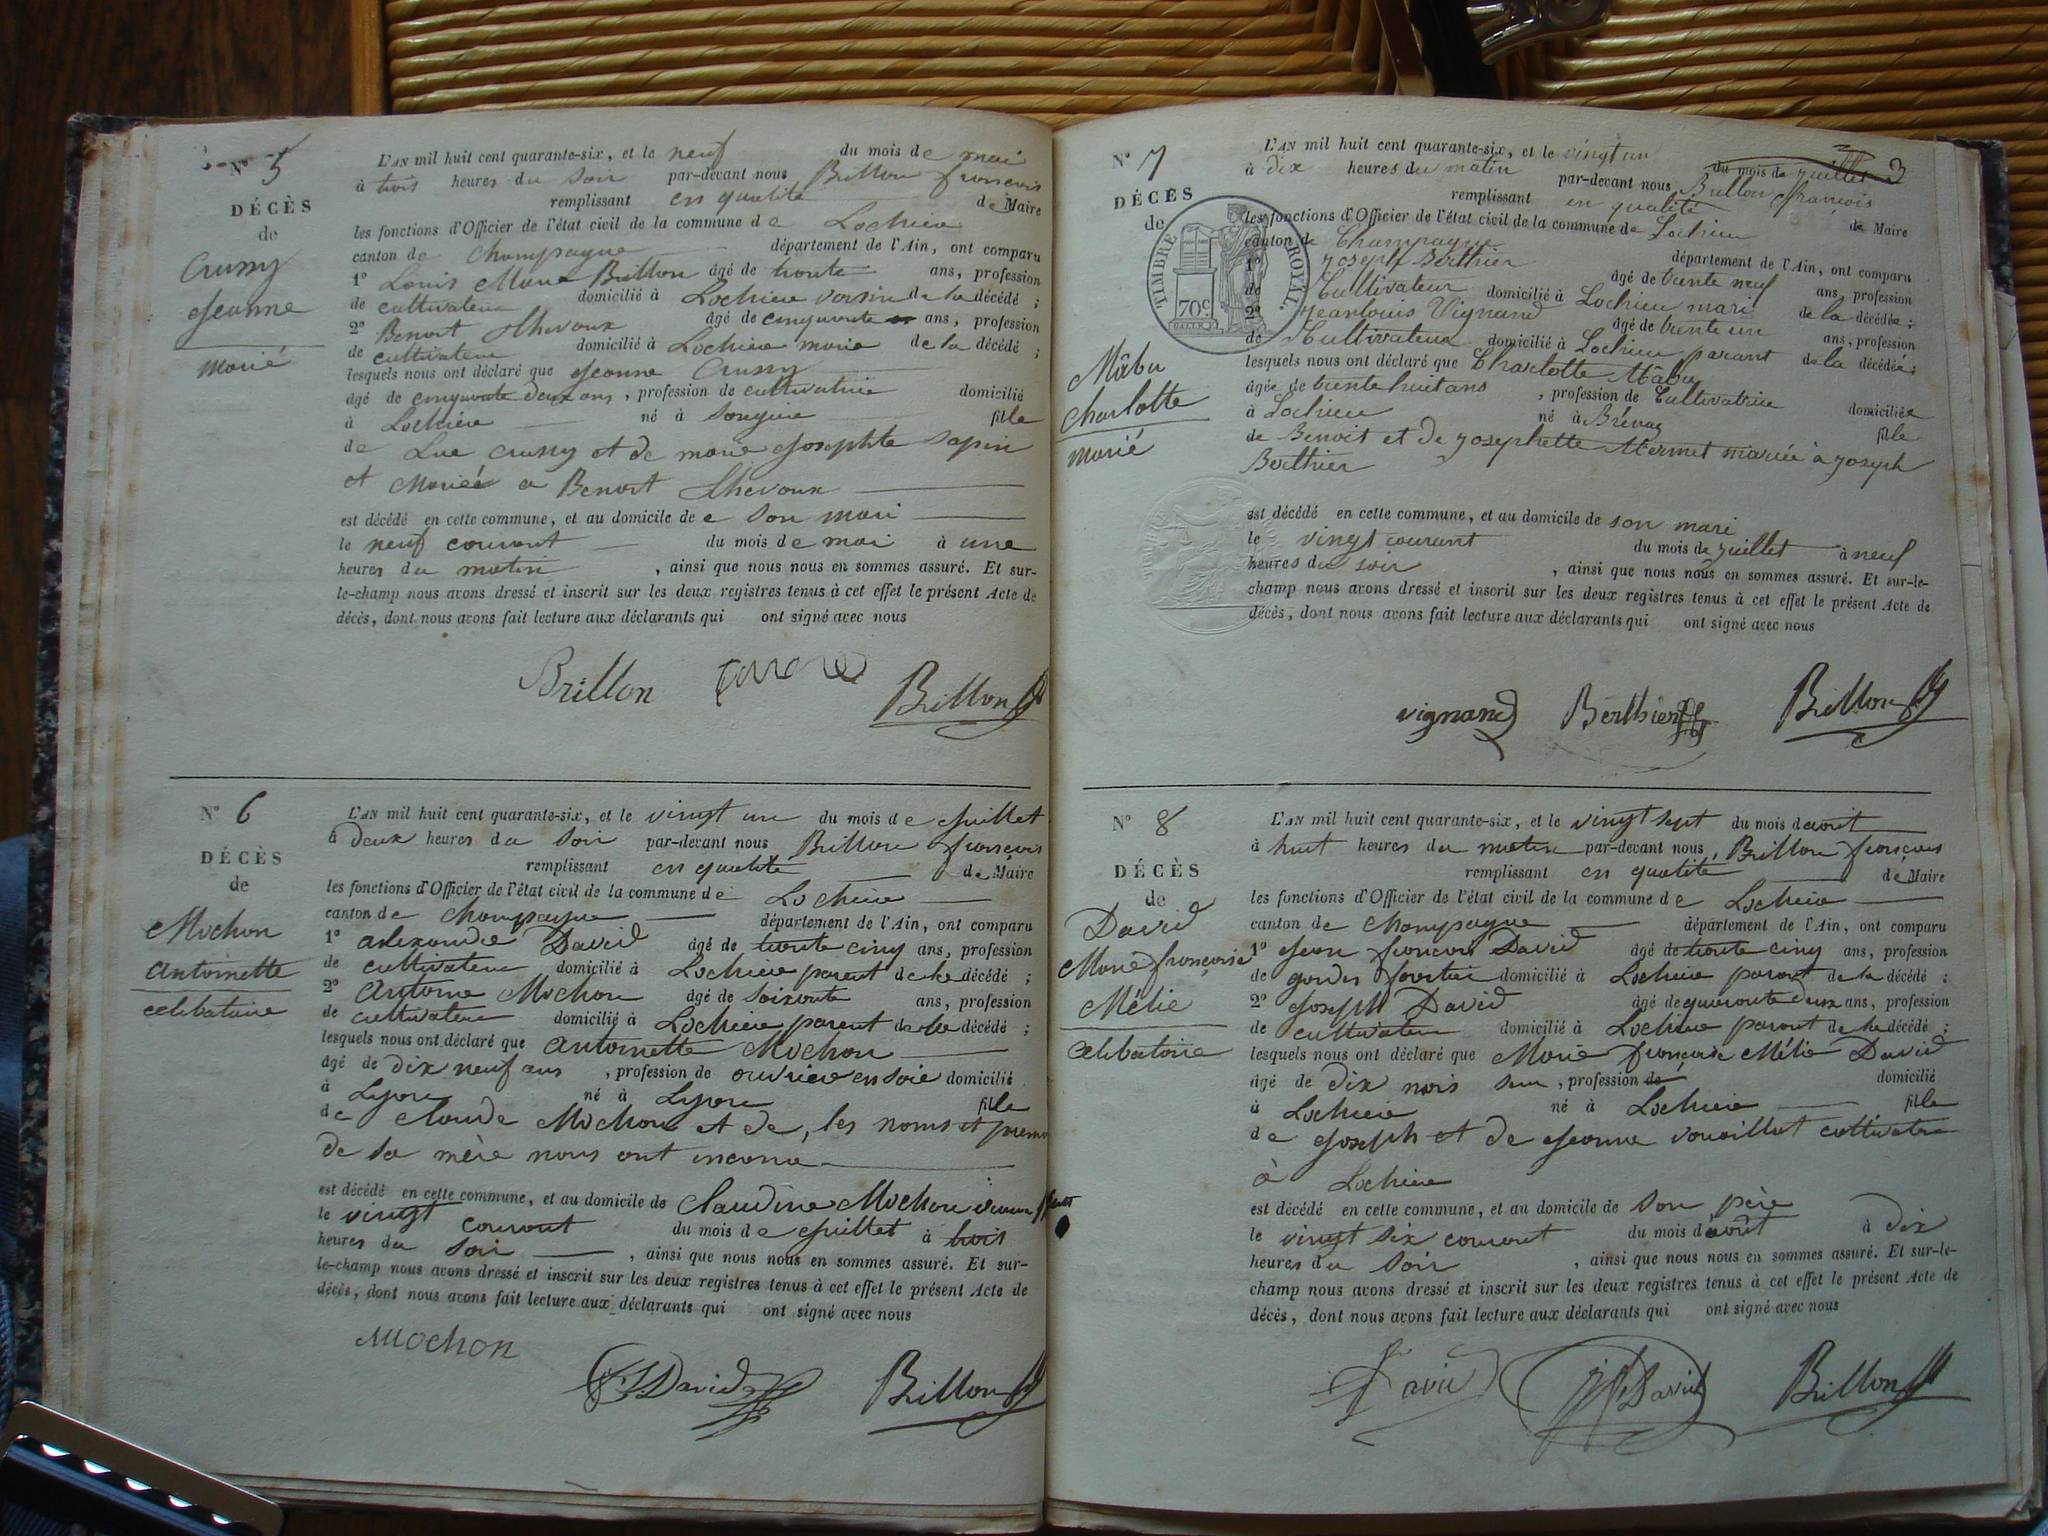 N° 5
DÉCÈS
de
Crussy
Jeanne
marié
L'AN mil huit cent quarante-six, et le neuf du mois de mai
à trois heures du soir par-devant nous Brillon françois
remplissant en qualité de Maire
les fonctions d'Officier de l'état civil de la commune de Lochieu
canton de Champagne département de l'Ain, ont comparu
1° Louis Marie Brillon âgé de trente ans, profession
de cultivateur domicilié à Lochieu voisin de la décédé ;
2° Benoit Thevoux âgé de cinquante ans, profession
de cultivateur domicilié à Lochieu marie de la décédé ;
lesquels nous ont déclaré que Jeanne Crussy
âgé de cinquante deux ans, profession de cultivatrice domicilié
à Lochieu né à Songieu fille
de Luc Crussy et de marie Josephte Sapin
et Mariée a Benoit Thevoux
est décédé en cette commune, et au domicile de son mari
le neuf courant du mois de mai à une
heures du matin, ainsi que nous nous en sommes assuré. Et sur-
le-champ nous avons dressé et inscrit sur les deux registres tenus à cet effet le présent Acte de
décès, dont nous avons fait lecture aux déclarants qui ont signé avec nous
Brillon Brillon
N° 6
DÉCÈS
de
Mochon
Antoinette
celibataire
L'AN mil huit cent quarante-six, et le vingt un du mois de Juillet
à deux heures du soir par-devant nous Brillon françois
remplissant en qualité de Maire
les fonctions d'Officier de l'état civil de la commune de Lochieu
canton de Champagne département de l'Ain, ont comparu
1° alexandre David âgé de trente cinq ans, profession
de cultivateur domicilié à Lochieu parent de la décédé ;
2° Antoine Mochon âgé de soixante ans, profession
de cultivateur domicilié à Lochieu parent de la décédé ;
lesquels nous ont déclaré que Antoinette Mochon
âgé de dix neuf ans, profession de ouvriere en soie domicilié
à Lyon né à Lyon fille
de Claude Mochon et de, les noms et prenoms
de sa mère nous ont inconnu
est décédé en cette commune, et au domicile de Claudine Mochon
le vingt courant du mois de Juillet à trois
heures du soir, ainsi que nous nous en sommes assuré. Et sur-
le-champ nous avons dressé et inscrit sur les deux registres tenus à cet effet le présent Acte de
décès, dont nous avons fait lecture aux déclarants qui ont signé avec nous
Mochon David Brillon
N° 7
DÉCÈS
de
TIMBRE ROYAL
70c
Mâbu
Charlotte
marié
3
L'AN mil huit cent quarante-six, et le vingt un du mois de juillet
à dix heures du matin par-devant nous Brillon françois
remplissant en qualité de Maire
les fonctions d'Officier de l'état civil de la commune de Lochieu
canton de Champagne département de l'Ain, ont comparu
1° Joseph Berthier âgé de trente neuf ans, profession
de Cultivateur domicilié à Lochieu mari de la décédée ;
2° Jeanlouis Vignand âgé de trente un ans, profession
de Cultivateur domicilié à Lochieu parant de la décédée ;
lesquels nous ont déclaré que Charlotte Mâbu
âgée de trente huit ans, profession de Cultivatrice domiciliée
à Lochieu né à Brénaz fille
de Benoit et de Josephette Mermet mariée à Joseph
Berthier
est décédé en cette commune, et au domicile de son mari
le vingt courant du mois de juillet à neuf
heures du soir, ainsi que nous nous en sommes assuré. Et sur-le-
champ nous avons dressé et inscrit sur les deux registres tenus à cet effet le présent Acte de
décès, dont nous avons fait lecture aux déclarants qui ont signé avec nous
vignand Berthier Brillon
N° 8
DÉCÈS
de
David
Marie françoise
Mélie
celibataire
L'AN mil huit cent quarante-six, et le vingt sept du mois daout
à huit heures du matin par-devant nous Brillon françois
remplissant en qualité de Maire
les fonctions d'Officier de l'état civil de la commune de Lochieu
canton de Champagne département de l'Ain, ont comparu
1° Jean françois David âgé de trente cinq ans, profession
de gardes forestier domicilié à Lochieu parent de la décédé ;
2° Joseph David âgé de quarante deux ans, profession
de cultivateur domicilié à Lochieu parent de la décédé ;
lesquels nous ont déclaré que Marie françoise Mélie David
âgé de dix mois, profession de domicilié
à Lochieu né à Lochieu fille
de Joseph et de Jeanne vouaillat cultivatr
à Lochieu
est décédé en cette commune, et au domicile de son père
le vingt six courant du mois daout à dix
heures du soir, ainsi que nous nous en sommes assuré. Et sur-le-
champ nous avons dressé et inscrit sur les deux registres tenus à cet effet le présent Acte de
décès, dont nous avons fait lecture aux déclarants qui ont signé avec nous
David David Brillon